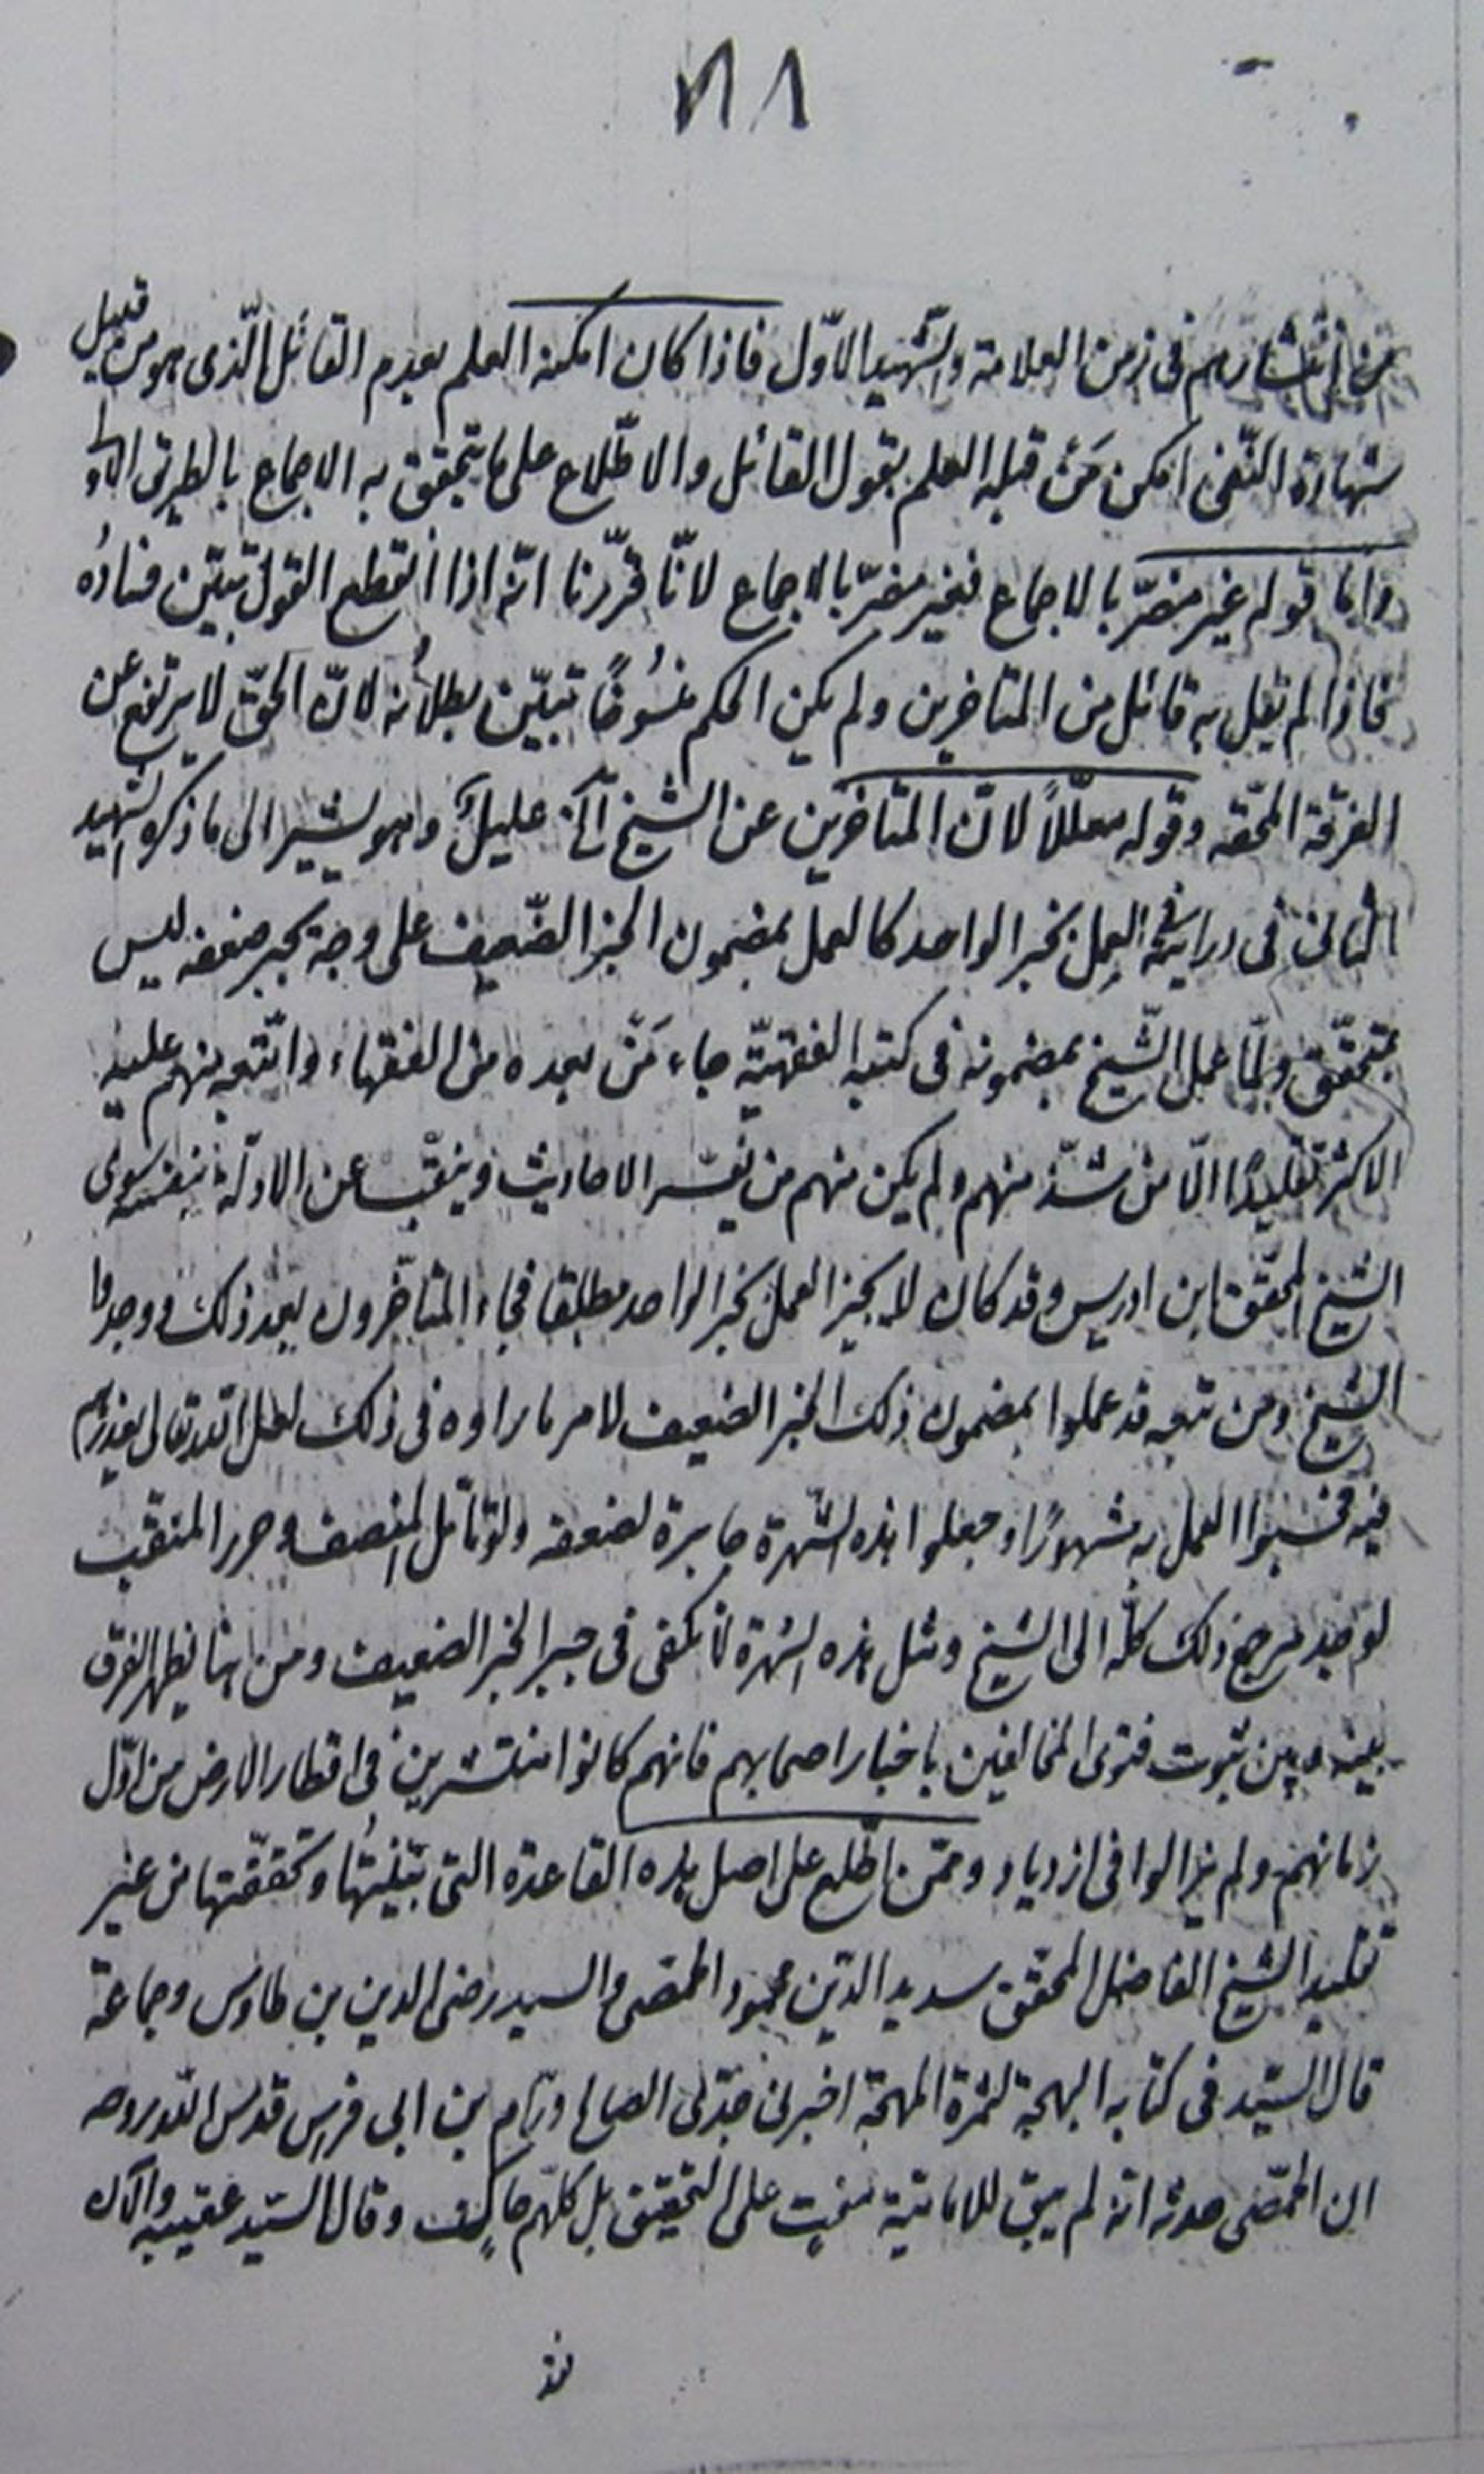 ٧١٨
من انتشارهم فى زمن العلامة والشّهيد الاوّل فاذا كان امكنه العلم بعدم القائل الّذى هو من قبيل
شهادة النّفى امكن مَن قبله العلم بقول القائل والاطّلاع على ما يتحقق به الاجماع بالطريق الاولى
وامّا قولهم غير مضرّ بالاجماع فغير مضرّ بالاجماع لانّا قرّرنا انّه اذا انقطع القول تبيّن فساده
فاذا لم يقل به قائل من المتاخرين ولم يكن الحكم منسُوخًا تبيّن بطلانُه لانّ الحقّ لا يرتفع عن
الفرقة المحقه وقوله معلّلاً لانّ المتاخّرين عن الشيخ آلخ عليلٌ وهو يشير الى ما ذكره الشهيد
الثانى فى درايته فى العمل بخبر الواحد كالعمل بمضمون الخبر الضّعيف على وجة يجبر ضعفه ليس
بمتحقّق ولمّا عمل الشّيخ بمضمونه فى كتبه الفقهيّة جاء مَن بعده من الفقهاء واتّبعه منهم عليه
الاكثر تقليدًا الّا من شذّ منهم ولم يكن منهم من يسبر الاحاديث وينقّب عن الادلّة بنفسه سوى
الشيخ المحقّق ابن ادريس وقد كان لا يجيز العمل بخبر الواحد مطلقا فجاء المتأخّرون بعد ذلك ووجدوا
الشيخ ومن تبعه قد عملوا بمضمون ذلك الخبر الضعيف لامر ما راوه فى ذلك لعل الله تعالى يعذرهم
فيه فحسبوا العمل به مشهورًا وجعلوا هذه الشّهرة جابرة لضعفه ولو تامّل المنصف وحرر المنقب
لوجد مرجع ذلك كلّه الى الشيخ ومثل هذه الشهرة لا تكفى فى جبر الخبر الضعيف ومن هنا يظهر الفرق
بينه وبين ثبوت فتوى المخالفين باخبار اصحابهم فانهم كانوا منتشرين فى اقطار الارض من اوّل
زمانهم ولم يزالوا فى ازدياد وممّن اطّلع على اصل هذه القاعدة التى بيّنتُها وتحقّقتها من غير
تقليد الشيخ الفاضل المحقق سديد الدّين محمود الحمّصى والسيد رضى الدين بن طاوس وجماعة
قال السيّد فى كتابه البهجة لثمرة المهجة اخبرنى جدّى الصالح ورّام بن ابى فرس قدس الله روحه
ان الحمّصى حدثه انّه لم يبق للاماميّة مفتٍ على التحقيق بل كلّهم حاكٍ وقال السيّد عقيبه والآن